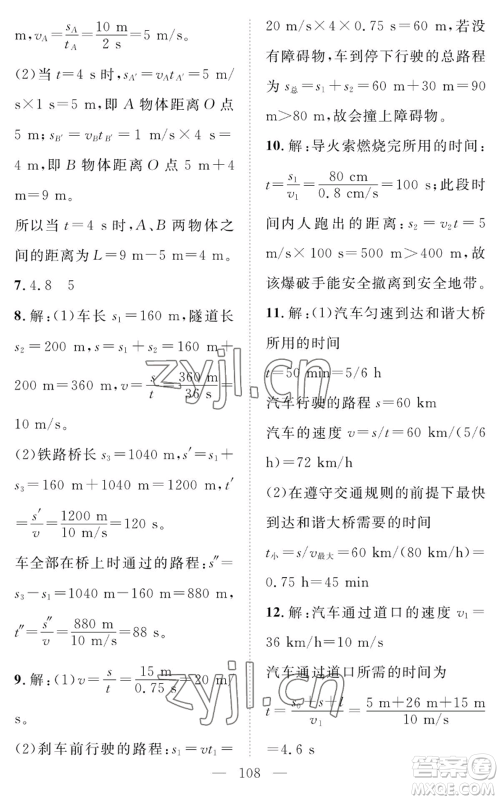 m,v_A=s_A/t_A=10 m/2 s=5 m/s。
(2)当 t=4 s 时,s_A′=v_At_A′=5 m/
s×1 s=5 m,即 A 物体距离 O 点
5 m;s_B′=v_Bt_B′=1 m/s×4 s=
4 m,即 B 物体距离 O 点 5 m+4
m=9 m。
所以当 t=4 s 时,A、B 两物体之
间的距离为 L=9 m-5 m=4 m。
7.4.8 5
8.解:(1)车长 s₁=160 m,隧道长
s₂=200 m,s=s₁+s₂=160 m+
200 m=360 m,v=s/t=360 m/36 s=
10 m/s。
(2)铁路桥长 s₃=1040 m,s′=s₁+
s₃=160 m+1040 m=1200 m,t′=
s′/v=1200 m/10 m/s=120 s。
车全部在桥上时通过的路程:s″=
s₃-s₁=1040 m-160 m=880 m,
t″=s″/v=880 m/10 m/s=88 s。
9.解:(1)v=s/t=15 m/0.75 s=20 m/
s。
(2)刹车前行驶的路程:s₁=vt₁=
20 m/s×4×0.75 s=60 m;若
没有障碍物,车到停下行驶的总路程
s总=s₁+s₂=60 m+30 m=90
m>80 m,故会撞上障碍物。
10.解:导火索燃烧完所用的时间:
t=s₁/v₁=80 cm/0.8 cm/s=100 s;此段时
间内人跑出的距离:s₂=v₂t=5
m/s×100 s=500 m>400 m,故
该爆破手能安全撤离到安全地带。
11.解:(1)汽车匀速到达和谐大桥
所用的时间
t=50 min=5/6 h
汽车行驶的路程 s=60 km
汽车的速度 v=s/t=60 km/(5/6
h)=72 km/h
(2)在遵守交通规则的前提下最快
到达和谐大桥需要的时间
t小=s/v最大=60 km/(80 km/h)=
0.75 h=45 min
12.解:汽车通过道口的速度 v₁=
36 km/h=10 m/s
汽车通过道口所需的时间为
t=s₀+s+l/v₁=5 m+26 m+15 m/10 m/s
=4.6 s
108
zyjl.cn
zyjl.cn
答案圈
MXQE.COM